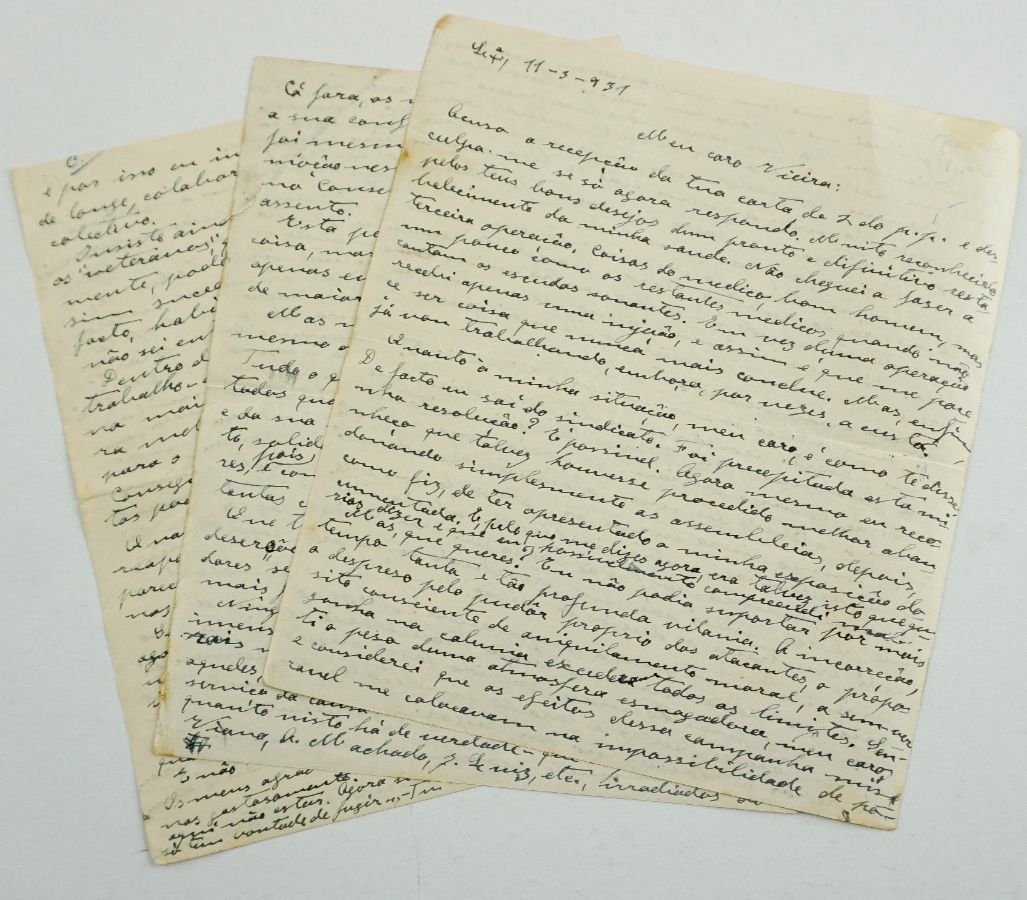 Lx.ª, 11-3-931
Meu caro Vieira:
Acuso a recepção da tua carta de 2 do p.p. e des
culpa-me se só agora respondo. Muito reconhecido
pelos teus bons desejos dum pronto e difinitivo resta
belecimento da minha saude. Não cheguei a fazer a
terceira operação. Coisas do medico, bom homem, mas
um pouco como os restantes médicos, quando não
cantam os escudos sonantes. Em vez duma operação
recebi apenas uma injeção, e assim é que me pare
ce ser coisa que nunca mais conclue. Mas, enfim,
já vou trabalhando, embora, por vezes, a custo.
Quanto à minha situação, meu caro, é como te disse.
De facto eu saí do sindicato. Foi precepitada esta mi
nha resolução? É possivel. Agora mesmo eu reco
nheço que talvez houvesse procedido melhor aban
donando simplesmente as assembleias, depois,
como fiz, de ter apresentado a minha exposição do
cumentada. E, pelo que me dizes agora, era talvez isto que que
rias dizer e que eu possivelmente compreendi mal.
Mas, que queres? Eu não podia suportar por mais
tempo tanta e tão profunda vilania. A incorreção,
o despreso pelo pudôr proprio dos atacantes, o propo
sito consciente de aniquilamento moral, a sem-ver
gonha na calunia excedeu todos os limites. Sen-
ti o peso duma atmosfera esmagadora, meu caro,
e considerei que os efeitos dessa campanha mis
ravel me colocavam na impossibilidade de pô-
Cá fora, os
a sua conf
foi mesm
moção nes
no Conse
assento.
Está po
coisa, mas
apenas eu
de maior
Mas
mesmo
Tudo o q
todos qua
e da sua
to, solid
res, é con
tantas
Que t
deserções
dores se
mais
Ning
imens
rais
aqueles
serviço da causa
quanto nisto há de verdade - que
Viana, A. Machado, J. Luiz, etc., irradiados
2/
e por isso ou in
de longe, colabor
colectivo.
Insisto aind
os "veteranos"
mente, pode
sim suced
facto, habi
não sei en
Dentro d
trabalho
na mai
ra mel
para o
Conseg
tas pa
respe
parec
nos
E não
Os meus agrad
nos gostosamente
aqui não estar. Agora
só tem vontade de fugir... Tu